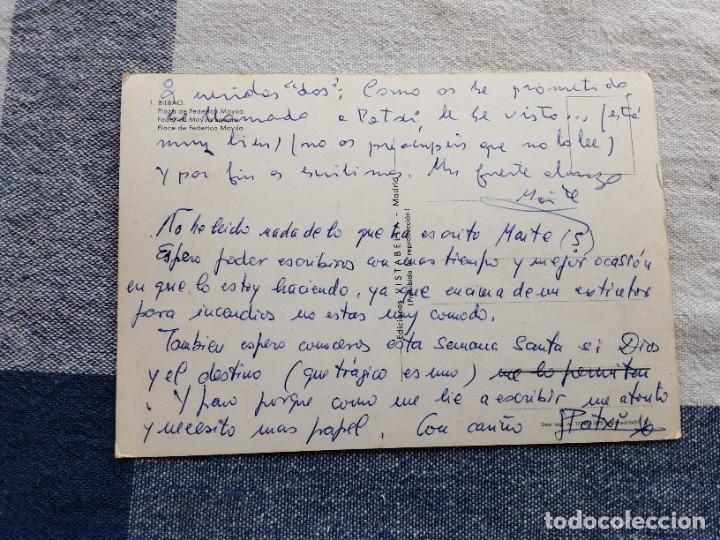 Queridos "dos": Como os he prometido
1. BILBAO.
Plaza de Federico Moyúa
Federico Moyúa Square
Place de Federico Moyúa
llamado a Patxi, le he visto... (está
muy bien) (no os preocupéis que no lo lee)
Y por fin os escribimos. Un fuerte abrazo
Maite
No he leido nada de lo que ha escrito Maite (?)
Espero poder escribiros con mas tiempo y mejor ocasión
en que lo estoy haciendo, ya que encima de un extintor
para incendios no estas muy comodo.
Tambien espero conoceros esta Semana Santa si Dios
y el destino (que trágico es uno) me lo permiten
. Y paro porque como me lie a escribir me atonto
y necesito mas papel. Con cariño Patxi
Ediciones VISTABELLA - Madrid
(Prohibida la reproducción)
Dep. leg.
todocoleccion